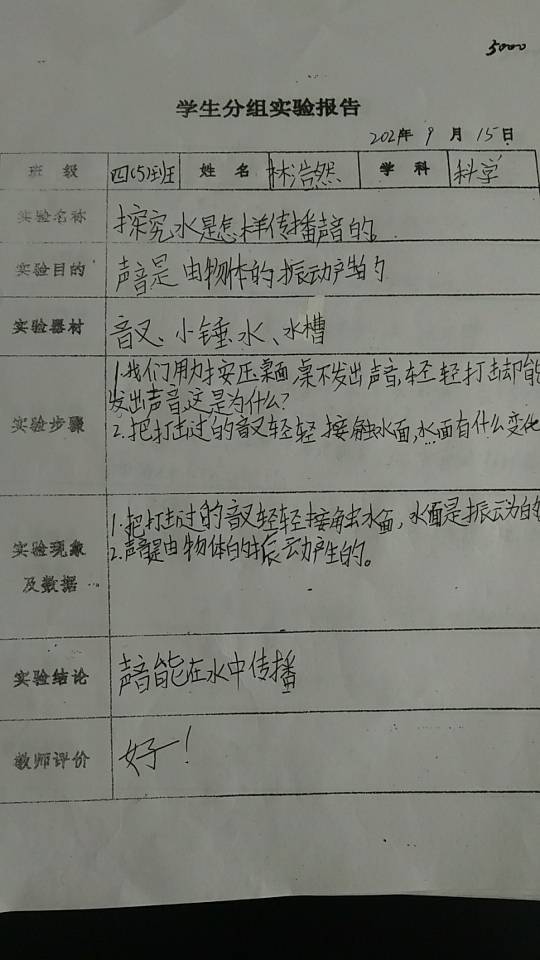 5000
学生分组实验报告
2021年 9 月 15日
班 级 四(5)班 姓 名 林浩然 学 科 科学
实验名称 探究水是怎样传播声音的。
实验目的 声音是由物体的振动产生的
实验器材 音叉、小锤、水、水槽
实验步骤
1.我们用力按压桌面,桌不发出声音,轻轻打击却能
发出声音,这是为什么?
2.把打击过的音叉轻轻接触水面,水面有什么变化
实验现象及数据
1.把打击过的音叉轻轻接触水面,水面是振动的
2.声音是由物体的振动产生的。
实验结论 声音能在水中传播
教师评价 好!